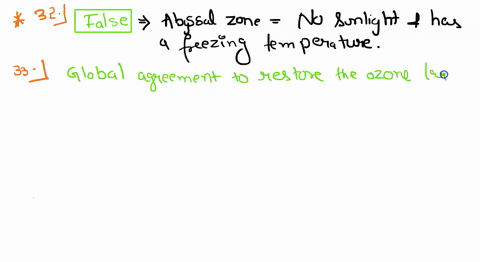 * 32.] False → Abyssal zone = No sunlight & has
a freezing temperature.
33.] Global agreement to restore the ozone la